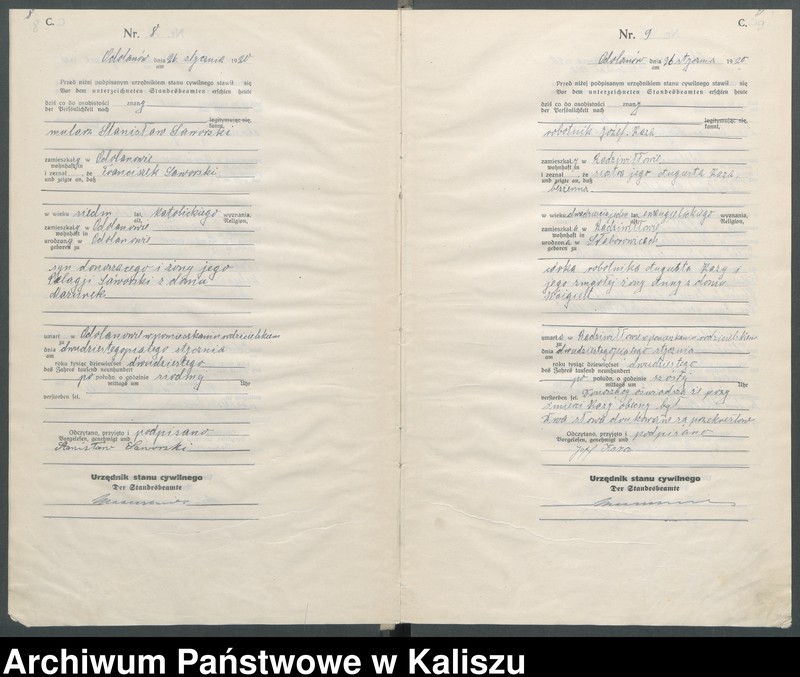 C.
Nr. 8
Odolanów dnia 26 stycznia 1920
am
Przed niżej podpisanym urzędnikiem stanu cywilnego stawił się
Vor dem unterzeichneten Standesbeamten erschien heute
dziś co do osobistości znany
der Persönlichkeit nach
legitymując się
kannt,
mularz Stanisław Jaworski
zamieszkały w Odolanowie
wohnhaft in
i zeznał, że Franciszek Jaworski
und zeigte an, daß
w wieku siedm lat, katolickiego wyznania.
alt, Religion,
zamieszkały w Odolanowie
wohnhaft in
urodzony w Odolanowie
geboren zu
syn donoszącego i żony jego
Pelagji Jaworski z domu
umarł w Odolanowie w pomieszkaniu rodzicielskiem
zu
dnia dwudziestegopiątego stycznia
am
roku tysiąc dziewięćset dwudziestego
des Jahres tausend neunhundert
po połudn. o godzinie siódmej
mittags um Uhr
verstorben sei.
Odczytano, przyjęto i podpisano
Vorgelesen, genehmigt und
Stanisław Jaworski
Urzędnik stanu cywilnego
Der Standesbeamte
C.
Nr. 9
Odolanów dnia 26 stycznia 1920
am
Przed niżej podpisanym urzędnikiem stanu cywilnego stawił się
Vor dem unterzeichneten Standesbeamten erschien heute
dziś co do osobistości znany
der Persönlichkeit nach
legitymując się
kannt,
robotnik Józef
zamieszkały w
wohnhaft in
i zeznał, że siostra jego Augusta
und zeigte an, daß
w wieku dwadzieścia jeden lat, ewangelickiego wyznania.
alt, Religion,
zamieszkała w
wohnhaft in
urodzona w
geboren zu
córka robotnika Augusta i
jego zmarłej żony Anny z domu
umarła w w pomieszkaniu rodzicielskiem
zu
dnia dwudziestegopiątego stycznia
am
roku tysiąc dziewięćset dwudziestego
des Jahres tausend neunhundert
po połudn. o godzinie szóstej
mittags um Uhr
verstorben sei. że przy
obecny był
Dwa słowa drukowane są przekreślone
Odczytano, przyjęto i podpisano
Vorgelesen, genehmigt und
Urzędnik stanu cywilnego
Der Standesbeamte
Archiwum Państwowe w Kaliszu